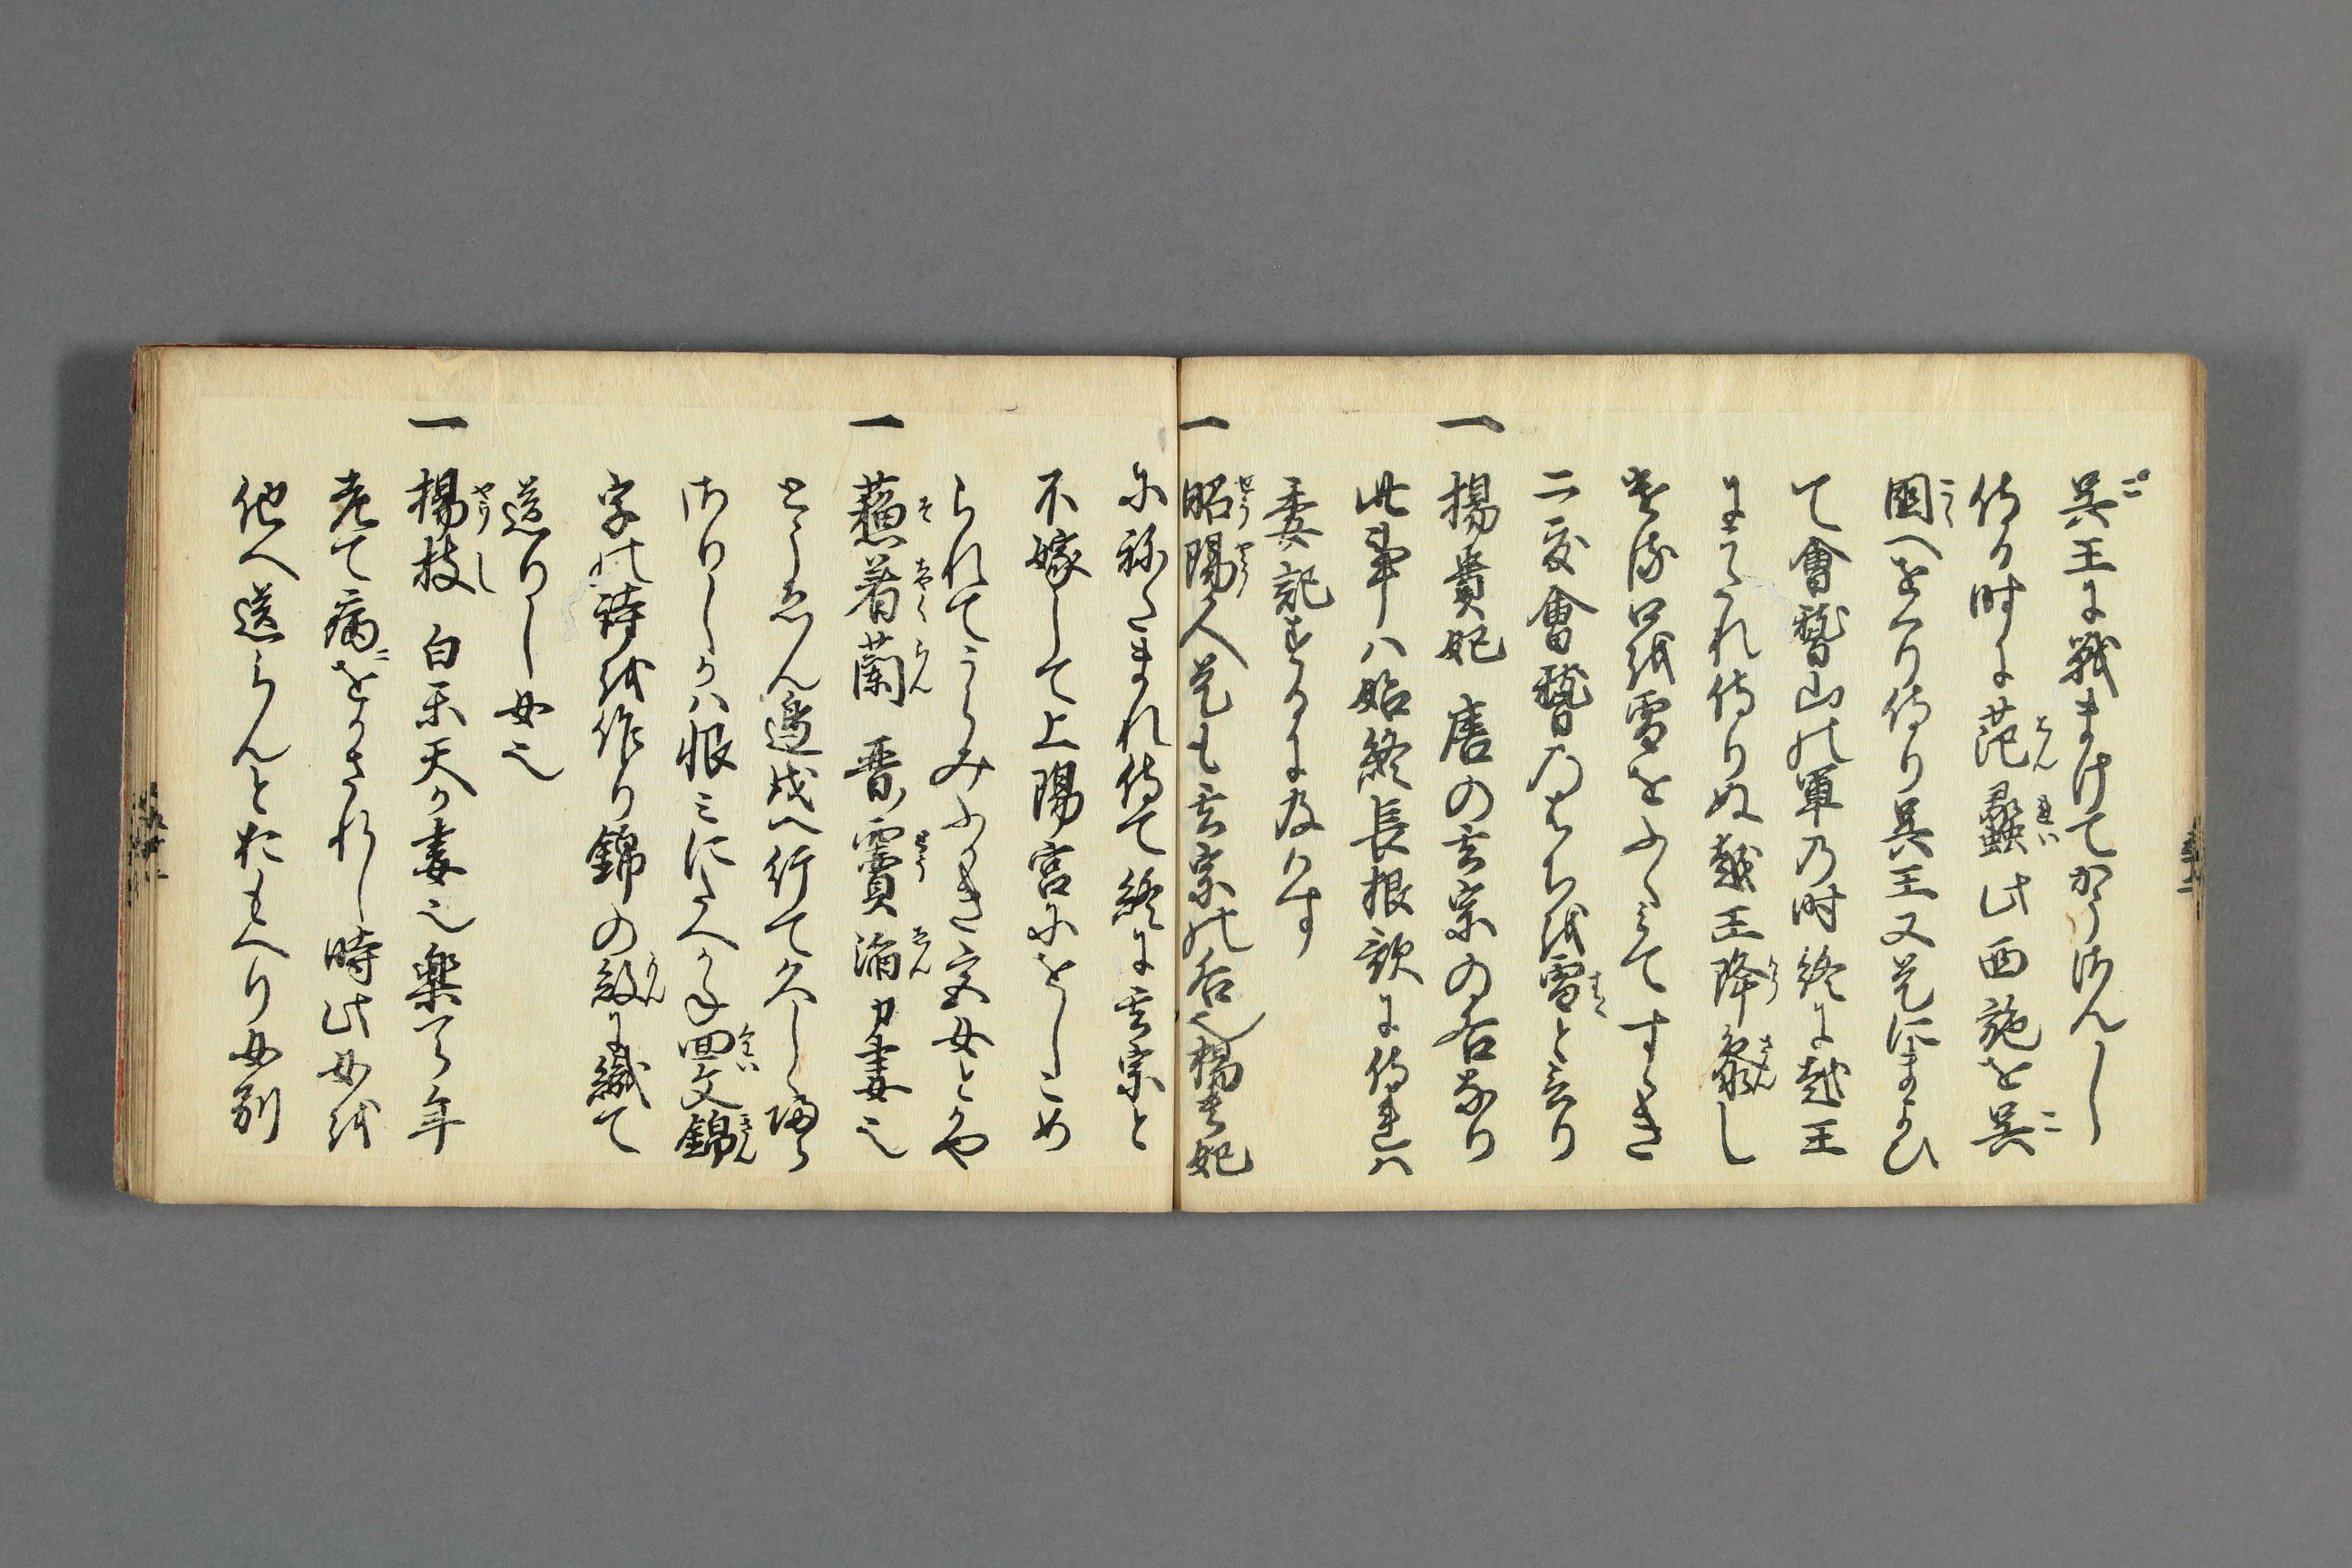 呉王に戦まけてかうさんし
侍る時に范蠡此西施を呉
國へをくり侍り呉王又是にまよひ
て會稽山の軍の時終に越王
にうたれ侍りぬ越王降参し
する口を雪をふくみてすゝき
二度會稽のはちを雪と云り
一 楊貴妃 唐の玄宗の后なり
此事ハ始終長恨歌に侍れハ
委記するに及はす
一 昭陽人是も玄宗の后也楊貴妃
にねたまれ侍て終に玄宗と
不嫁して上陽宮にをしこめ
られてうらみふかき女とかや
一 蘓若蘭 晋竇滔か妻也
とうゑん邊戍へ行て久しく帰ら
さりしかハ恨みにたへかね回文錦
字の詩を作り錦の紋に織て
送りし女也
一 楊枝 白楽天か妻也楽天年
老て病にをかされし時此女を
他へ送らんとおもへり女別